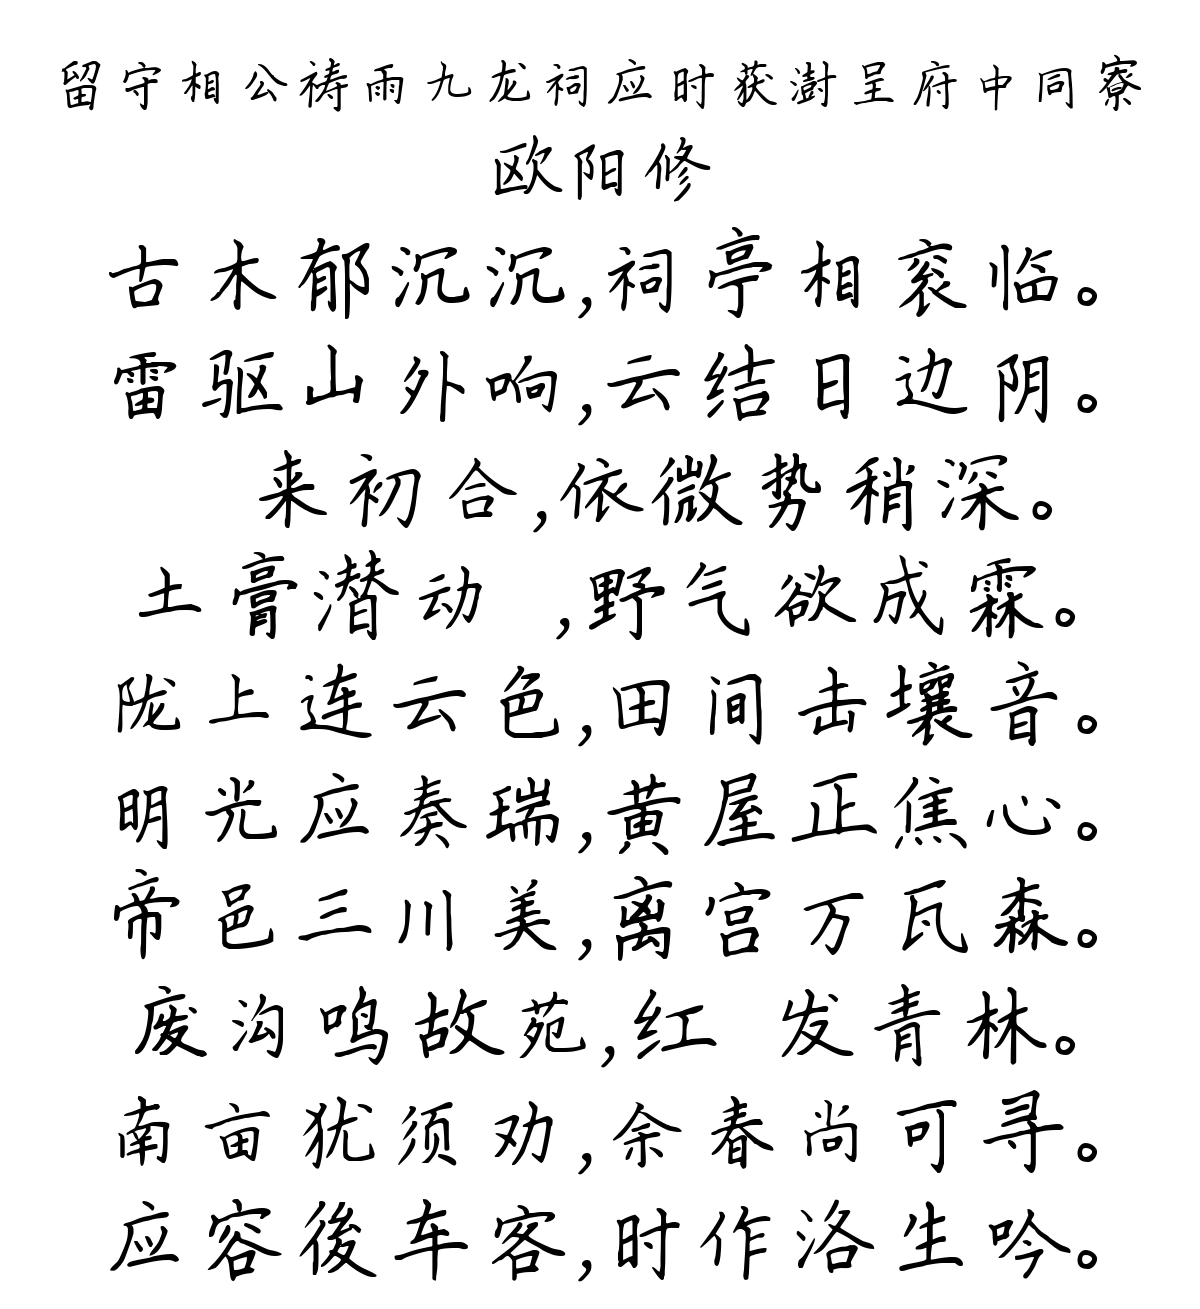 留守相公祷雨九龙祠应时获澍呈府中同寮
欧阳修
古木郁沉沉,祠亭相衮临。
雷驱山外响,云结日边阴。
来初合,依微势稍深。
土膏潜动,野气欲成霖。
陇上连云色,田间击壤音。
明光应奏瑞,黄屋正焦心。
帝邑三川美,离宫万瓦森。
废沟鸣故苑,红发青林。
南亩犹须劝,余春尚可寻。
应容後车客,时作洛生吟。